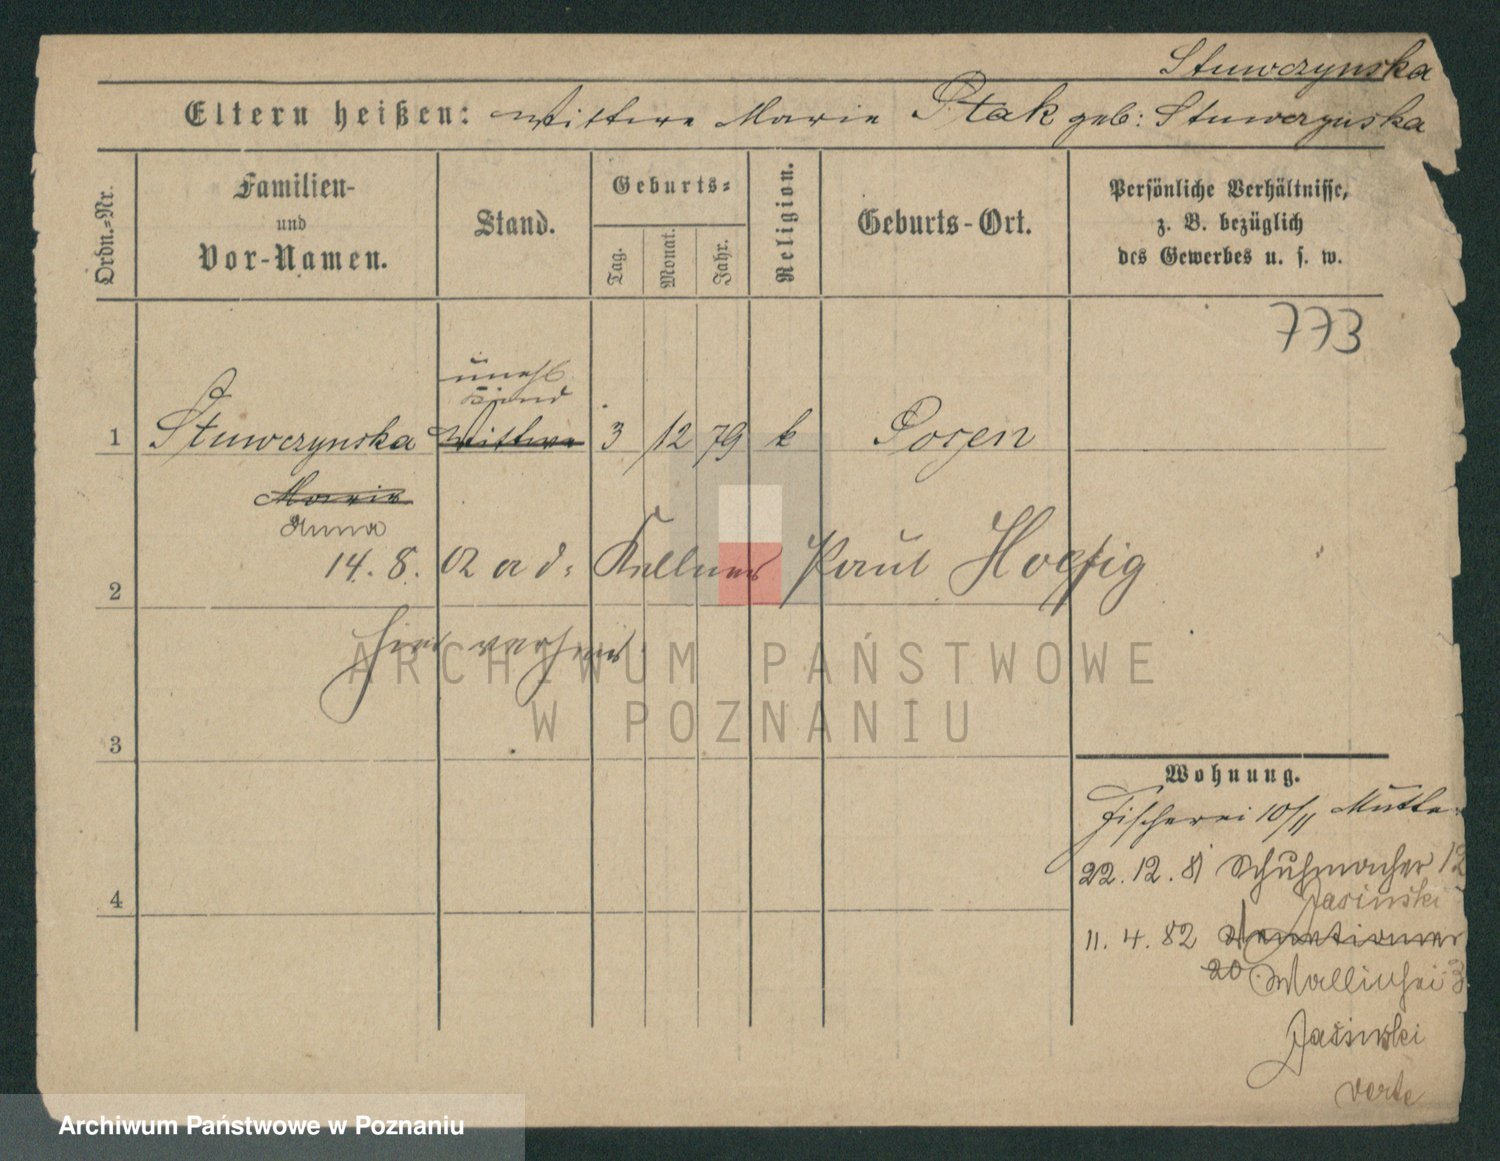 Stuwczynska
Eltern heißen: Wittwe Marie Ptak geb: Stuwczynska
Ordn.-Nr.
Familien-
und
Vor-Namen.
Stand.
Geburts-
Tag.
Monat.
Jahr.
Religion.
Geburts-Ort.
Persönliche Verhältnisse,
z. B. bezüglich
des Gewerbes u. s. w.
773
unehl
Kind
1 Stuwczynska Wittwe 3 12 79 k Posen
Marie
Anna
2 14. 8. 02 a d: Kellner Paul Hoefig
hier verheir
3
4
Wohnung.
Fischerei 10/11 Mutter
22. 12. 81 Schuhmacher 12
Jasinski
11. 4. 82
20 Wallischei 3
Jasinski
verte
ARCHIWUM PAŃSTWOWE
W POZNANIU
Archiwum Państwowe w Poznaniu